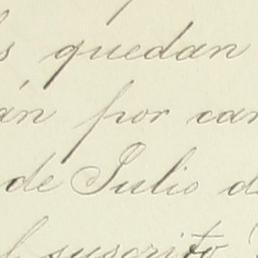 s quedan
án por can
de Julio de
el suscrito